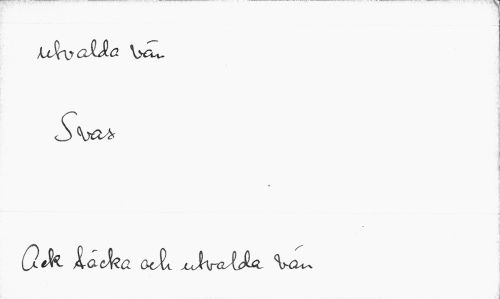 utvalda vän
Svar
Ack täcka och utvalda vän